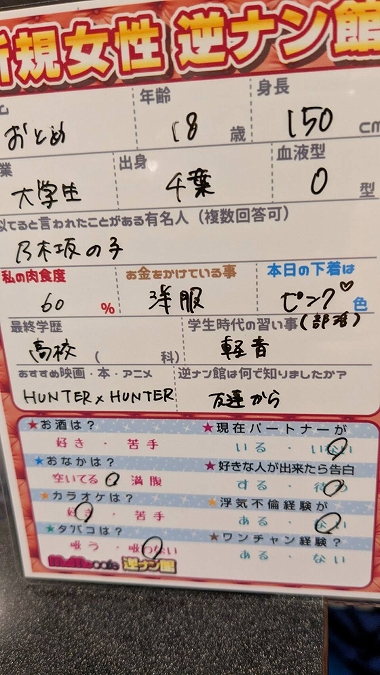 新規女性 逆ナン館
年齢 身長
おとめ 18 歳 150 cm
業 出身 血液型
大学生 千葉 O 型
似てると言われたことがある有名人(複数回答可)
乃木坂の子
私の肉食度 お金をかけている事 本日の下着は
60 % 洋服 ピンク♡ 色
最終学歴 学生時代の習い事(部活)
高校 ( 科) 軽音
おすすめ映画・本・アニメ 逆ナン館は何で知りましたか?
HUNTER×HUNTER 友達から
★お酒は? ★現在パートナーが
好き・苦手 いる・いない
★おなかは? ★好きな人が出来たら告白
空いてる 満腹 する・待つ
★カラオケは? ★浮気不倫経験が
好き・苦手 ある・ない
★タバコは? ★ワンチャン経験?
吸う・吸わない ある・ない
cafe 逆ナン館